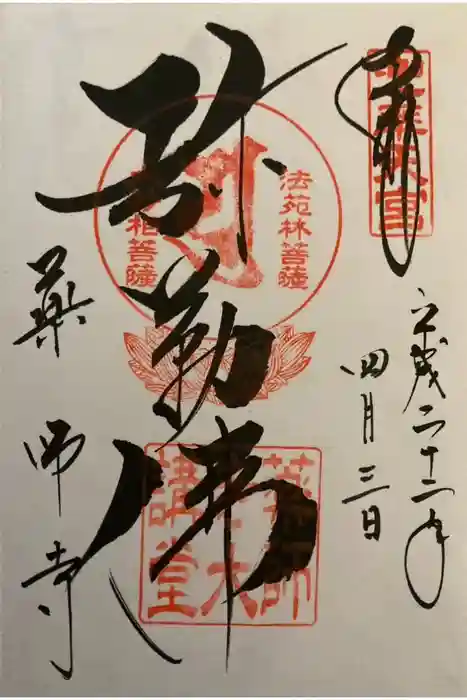 奉拝
平成二十二年
四月三日
弥勒佛
法苑林菩薩
相菩薩
薬師
寺大
講堂
薬師寺